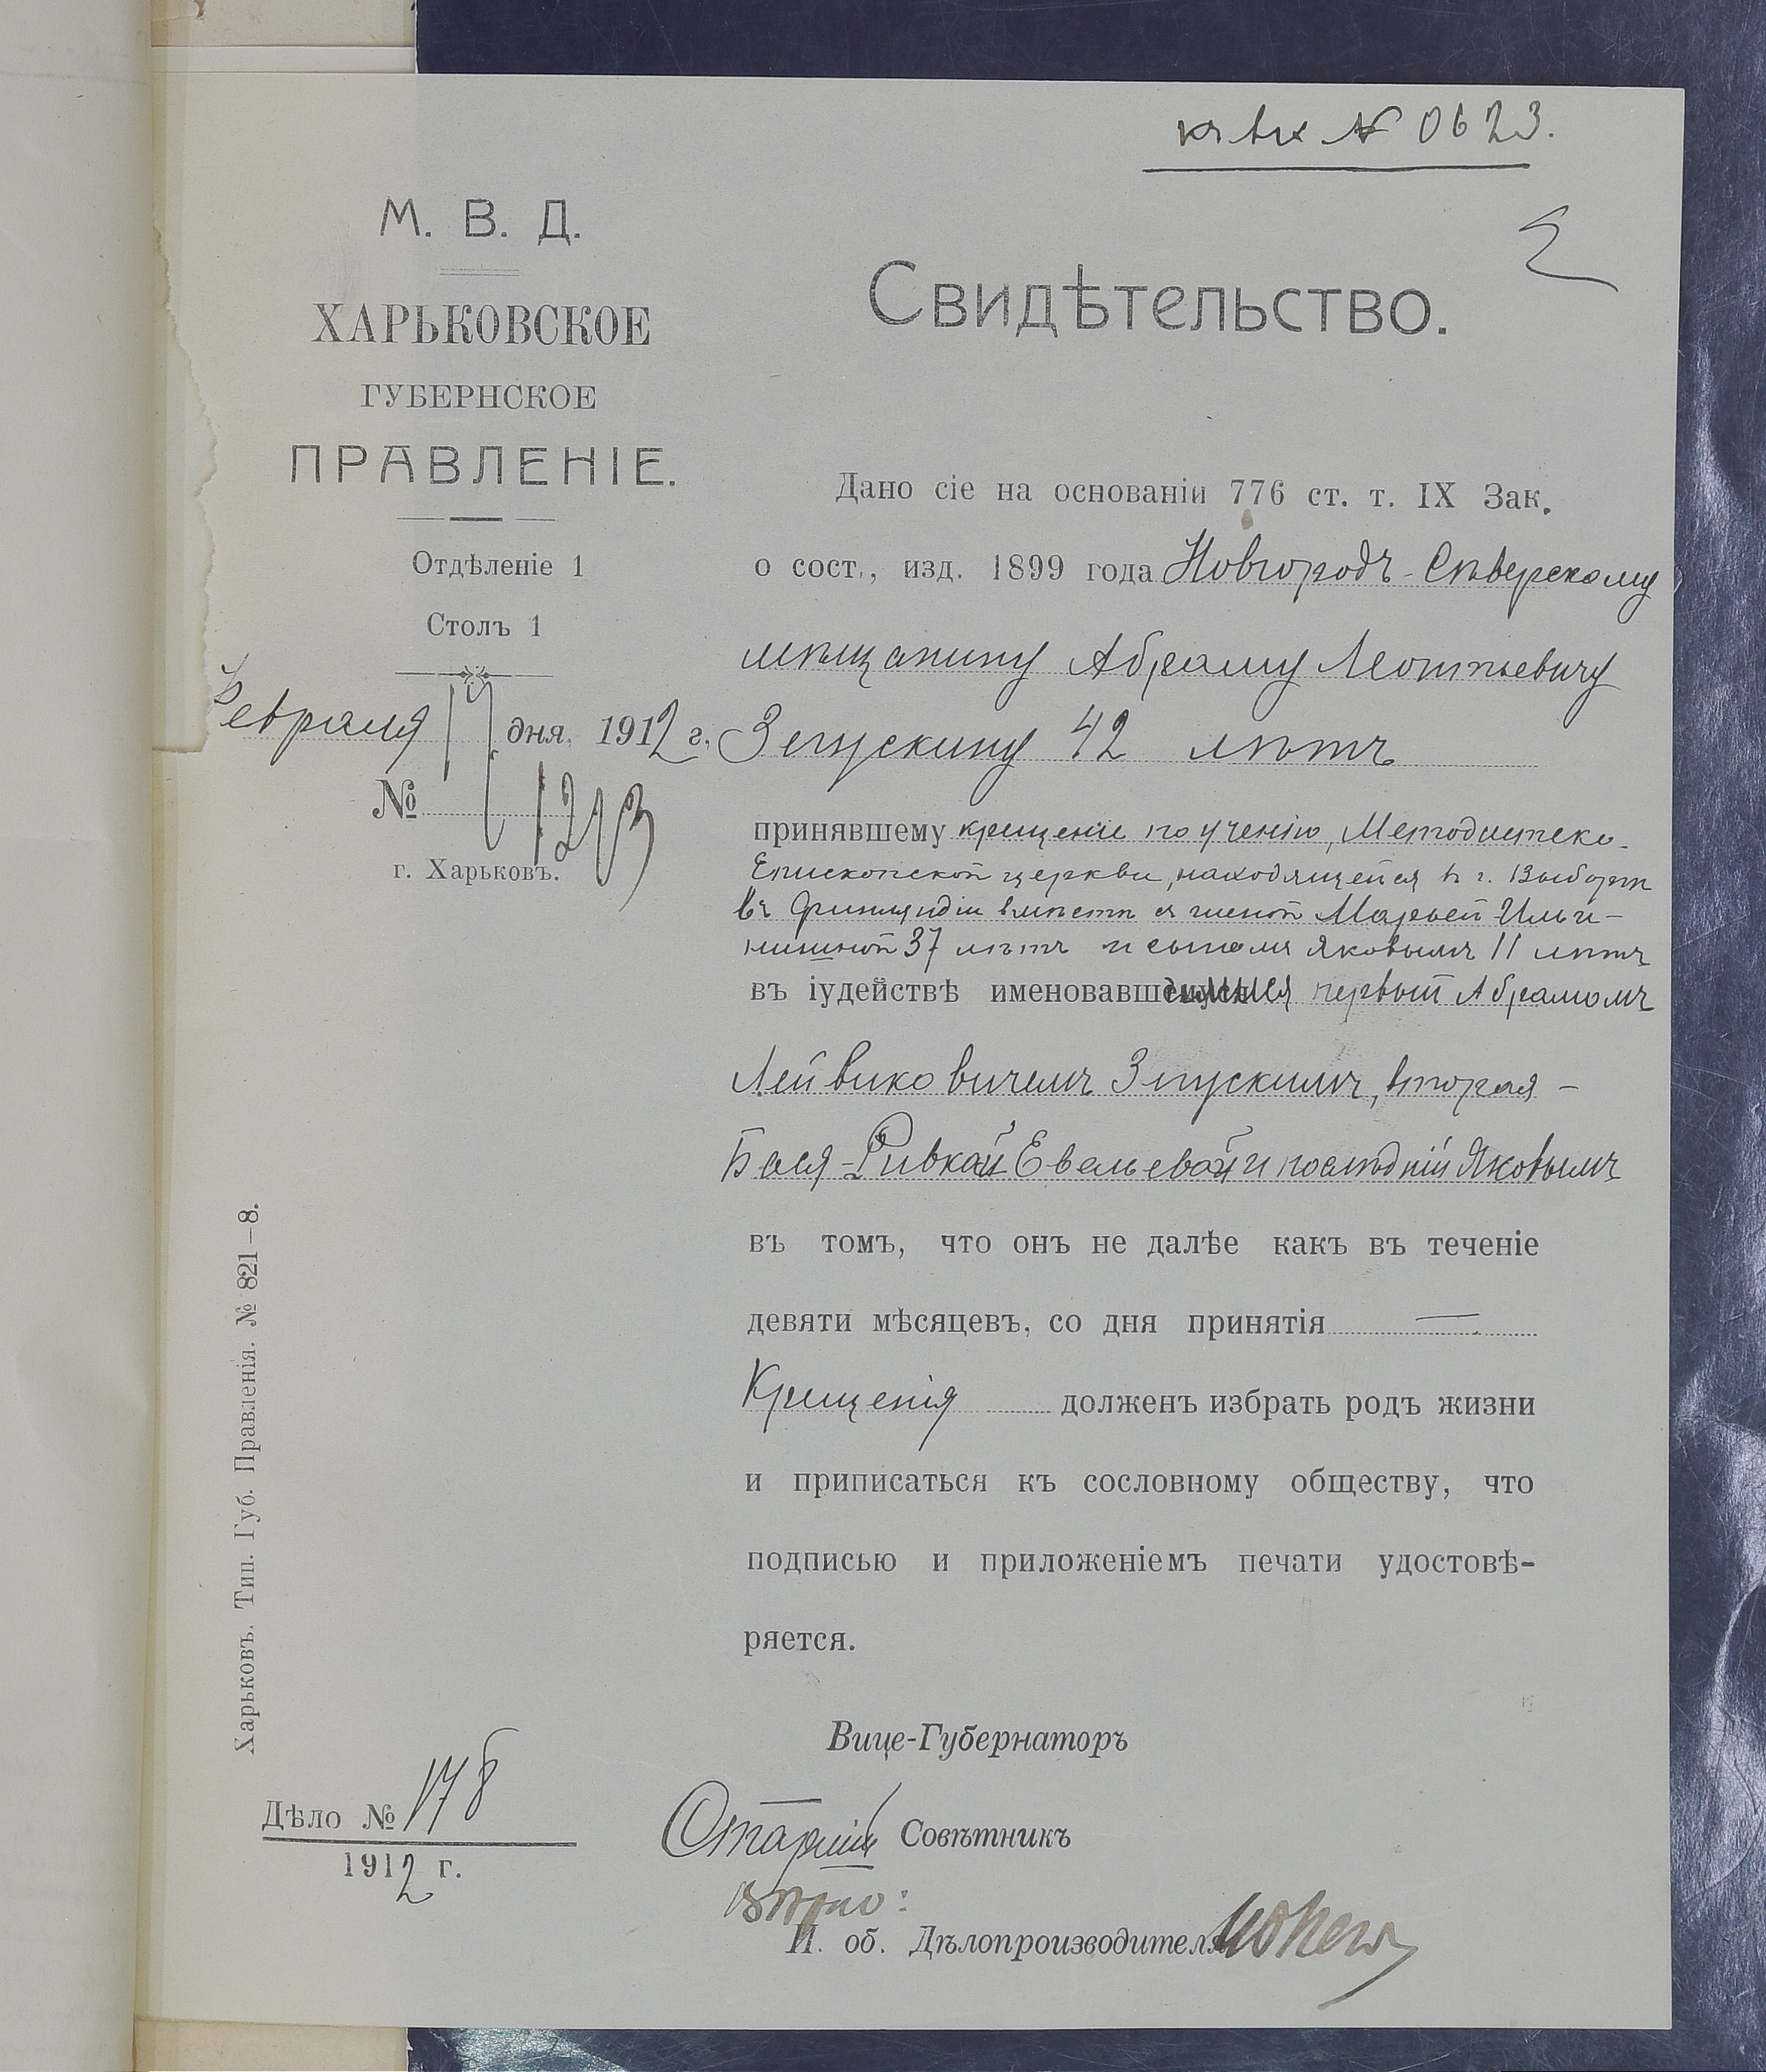 къ вх № 0623.
2
М. В. Д.
ХАРЬКОВСКОЕ
ГУБЕРНСКОЕ
ПРАВЛЕНІЕ.
Отдѣленіе 1
Столъ 1
Февраля 17 дня, 1912 г.
№ 1213
г. Харьковъ.
Свидѣтельство.
Дано сіе на основаніи 776 ст. т. IX Зак.
о сост., изд. 1899 года Новгородъ-Сѣверскому
мѣщанину Абраму Леонтьевичу
42 лѣтъ
принявшему крещеніе по ученію, Методистско-
Епископской церкви, находящейся въ г. Выборгѣ
въ Финляндіи вмѣстѣ съ женой Марьей Ильи-
нишной 37 лѣтъ и сыномъ Яковымъ 11 лѣтъ
въ іудействѣ именовавшимися первый Абрамомъ
Лейвиковичемъ Зпускимъ, вторая –
Бася-Ривкой Евельевой и послѣдній Яковымъ
въ томъ, что онъ не далѣе какъ въ теченіе
девяти мѣсяцевъ, со дня принятія —
Крещенія должен избрать родъ жизни
и приписаться къ сословному обществу, что
подписью и приложеніемъ печати удостовѣ-
ряется.
Вице-Губернаторъ
Старшій Совѣтникъ
Вѣрно:
И. об. Дѣлопроизводителя
Дѣло № 178
1912 г.
Харьковъ. Тип. Губ. Правленія. № 821–8.